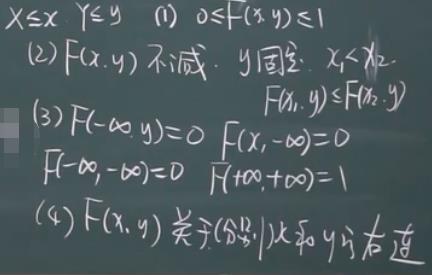 X≤x Y≤y (1) 0≤F(x,y)≤1
(2) F(x,y) 不减. y固定. x₁<x₂
F(x₁,y)≤F(x₂,y)
(3) F(-∞,y)=0 F(x,-∞)=0
F(-∞,-∞)=0 F(+∞,+∞)=1
(4) F(x,y) 关于(分别)x和y 右连